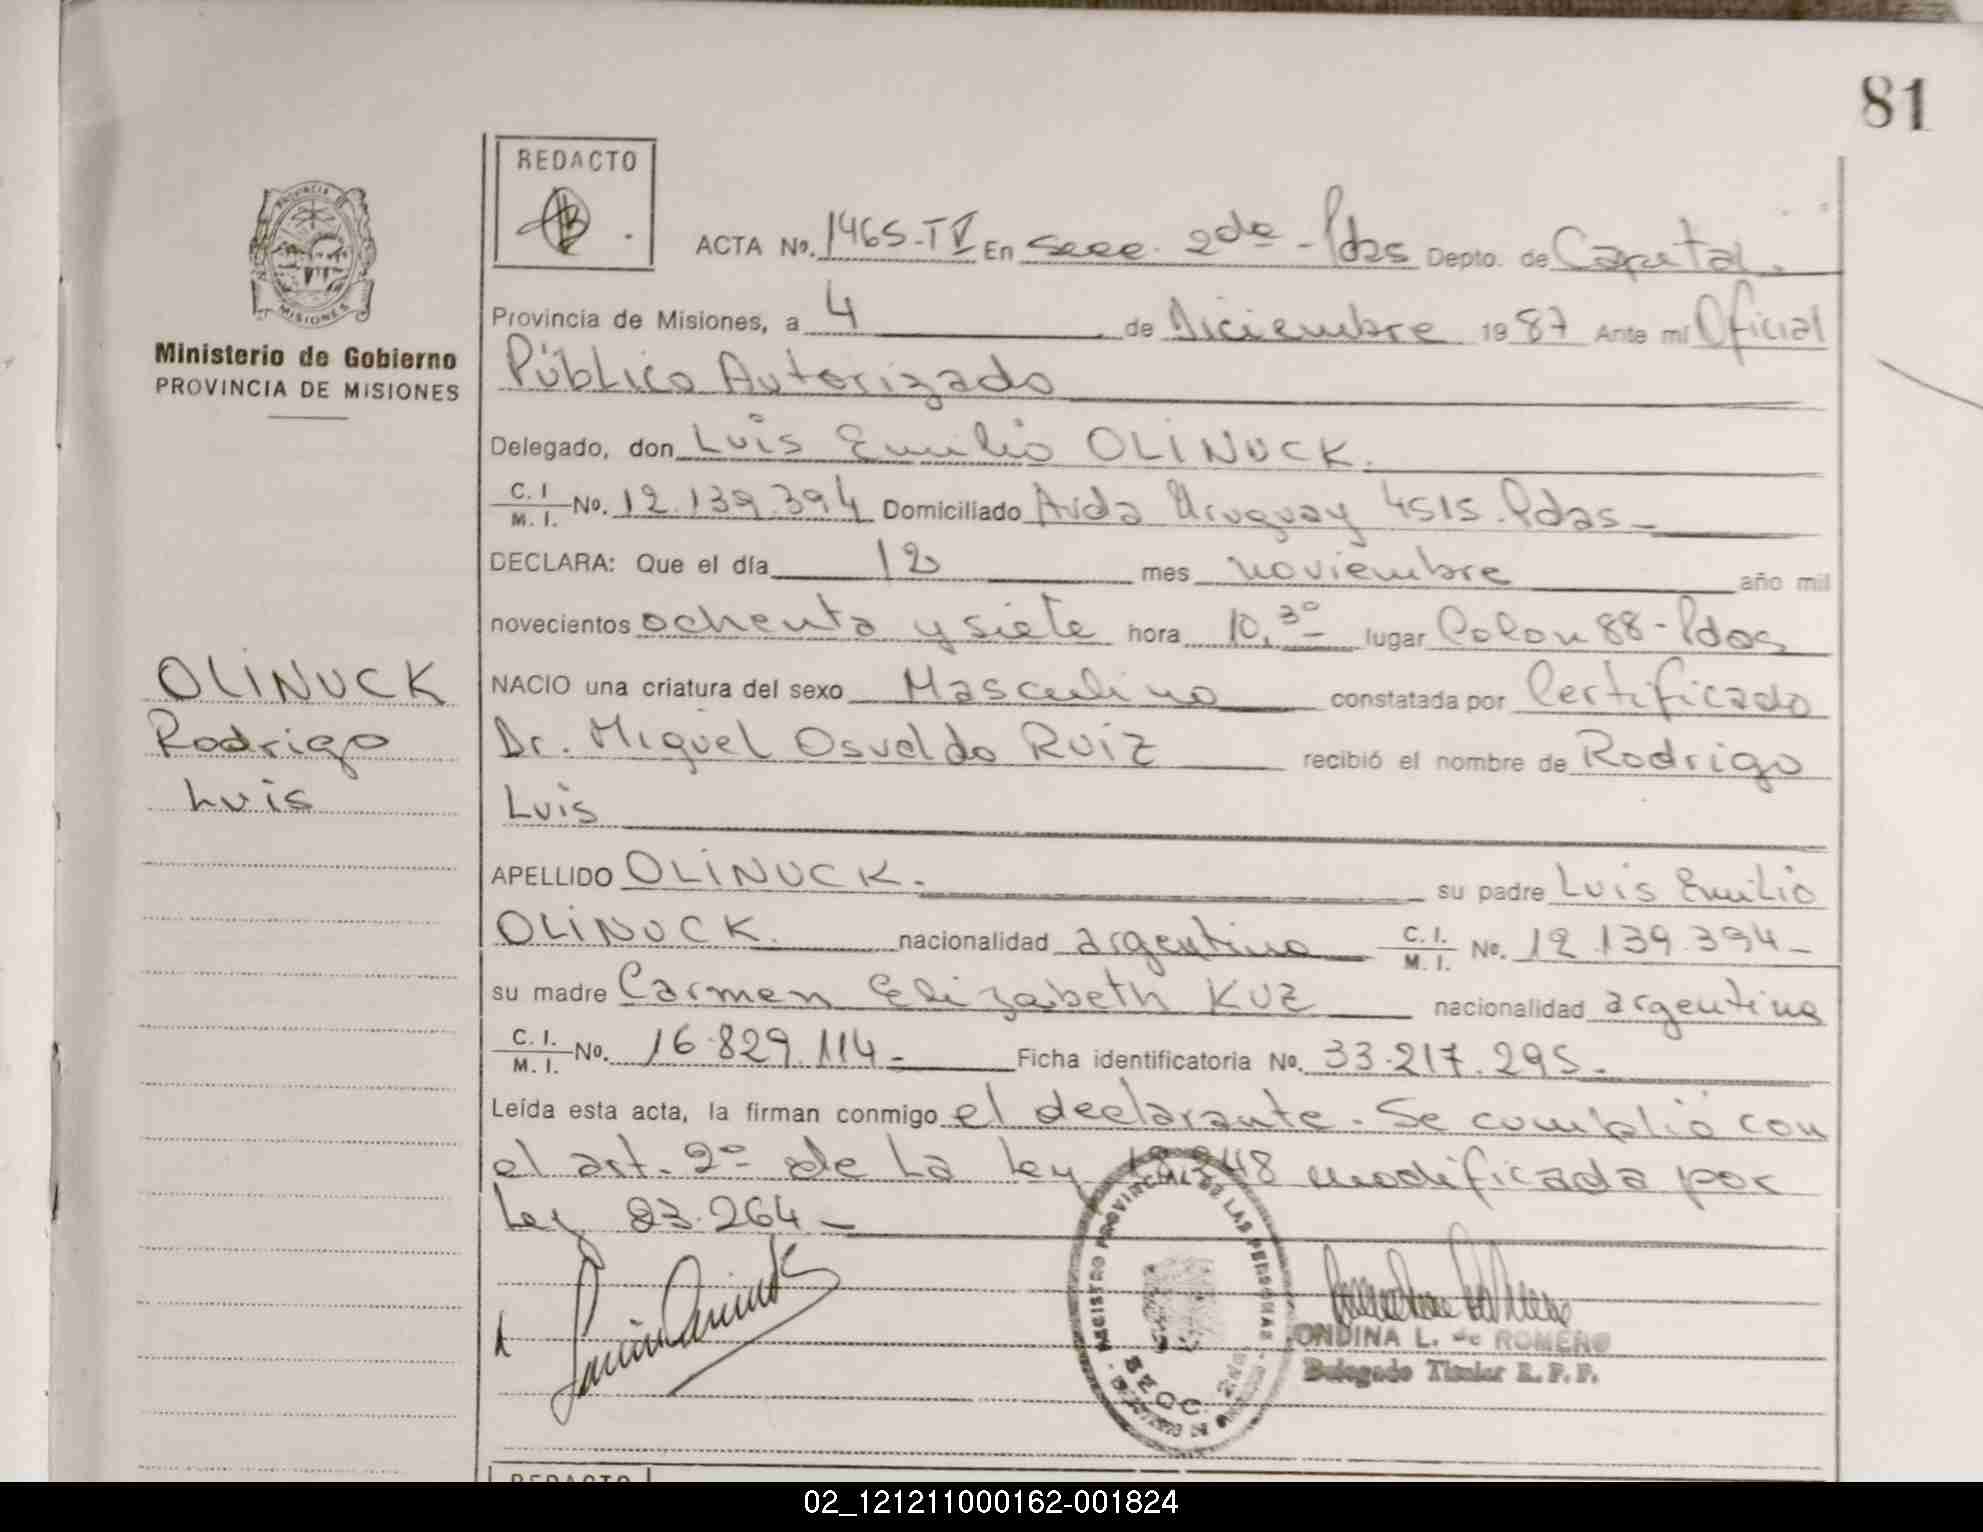 81
REDACTO
ACTA No. 1465-TV En Secc. 2da - Pdas Depto. de Capital.
PROVINCIA
MISIONES
Ministerio de Gobierno
PROVINCIA DE MISIONES
Provincia de Misiones, a 4 de Diciembre 1987 Ante mí Oficial
Público Autorizado
Delegado, don Luis Emilio OLINUCK.
C. I / M. I. No. 12.139.394 Domiciliado Avda Uruguay 4515. Pdas-
DECLARA: Que el día 12 mes noviembre año mil
novecientos ochenta y siete hora 10,30 lugar Colon 88-Pdas
OLINUCK
Rodrigo
Luis
NACIO una criatura del sexo Masculino constatada por Certificado
Dr. Miguel Osvaldo RUIZ recibió el nombre de Rodrigo
Luis
APELLIDO OLINUCK. su padre Luis Emilio
OLINUCK. nacionalidad argentina C. I. / M. I. No. 12.139.394-
su madre Carmen Elizabeth KUZ nacionalidad argentina
C. I. / M. I. No. 16.829.114- Ficha identificatoria No. 33.217.295.-
Leída esta acta, la firman conmigo el declarante. Se cumplió con
el art. 2º de la Ley 18.248 modificada por
Ley 23.264-
REGISTRO PROVINCIAL DE LAS PERSONAS
SECC. 2da.
ONDINA L. de ROMERO
Delegado Titular R. P. P.
REDACTO
02_121211000162-001824